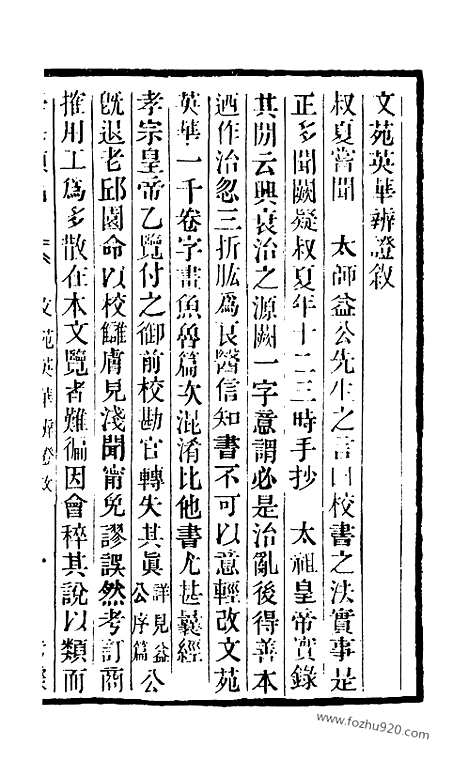 文苑英華辨證敘
叔夏嘗聞　太師益公先生之言曰校書之法實事是
正多聞闕疑叔夏年十二三時手抄　太祖皇帝實錄
其閒云興衰治之源闕一字意謂必是治亂後得善本
迺作治忽三折肱為良醫信知書不可以意輕改文苑
英華一千卷字畫魚魯篇次混淆比他書尤甚曩經
孝宗皇帝乙覽付之御前校勘官轉失其眞詳見益公序篇公
旣退老邱園命以校讎膚見淺聞甯免謬誤然考訂商
搉用工爲多散在本文覽者難徧因會稡其說以類而
文苑英華辨證敘
www.fozhu920.com